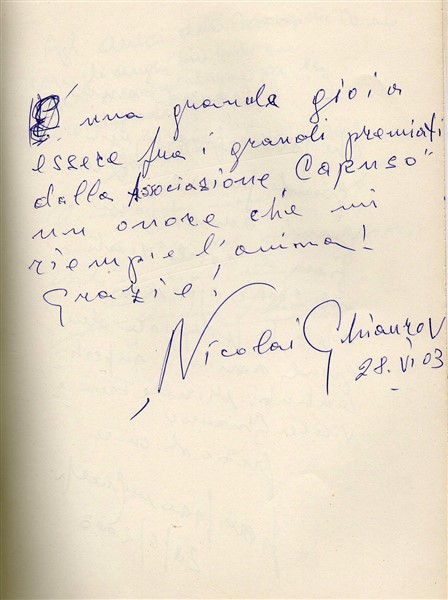 È una grande gioia
essere fra i grandi premiati
dalla Associazione Caruso"
un onore che mi
riempie l'anima!
Grazie!
Nicolai Ghiaurov
28.VI 03